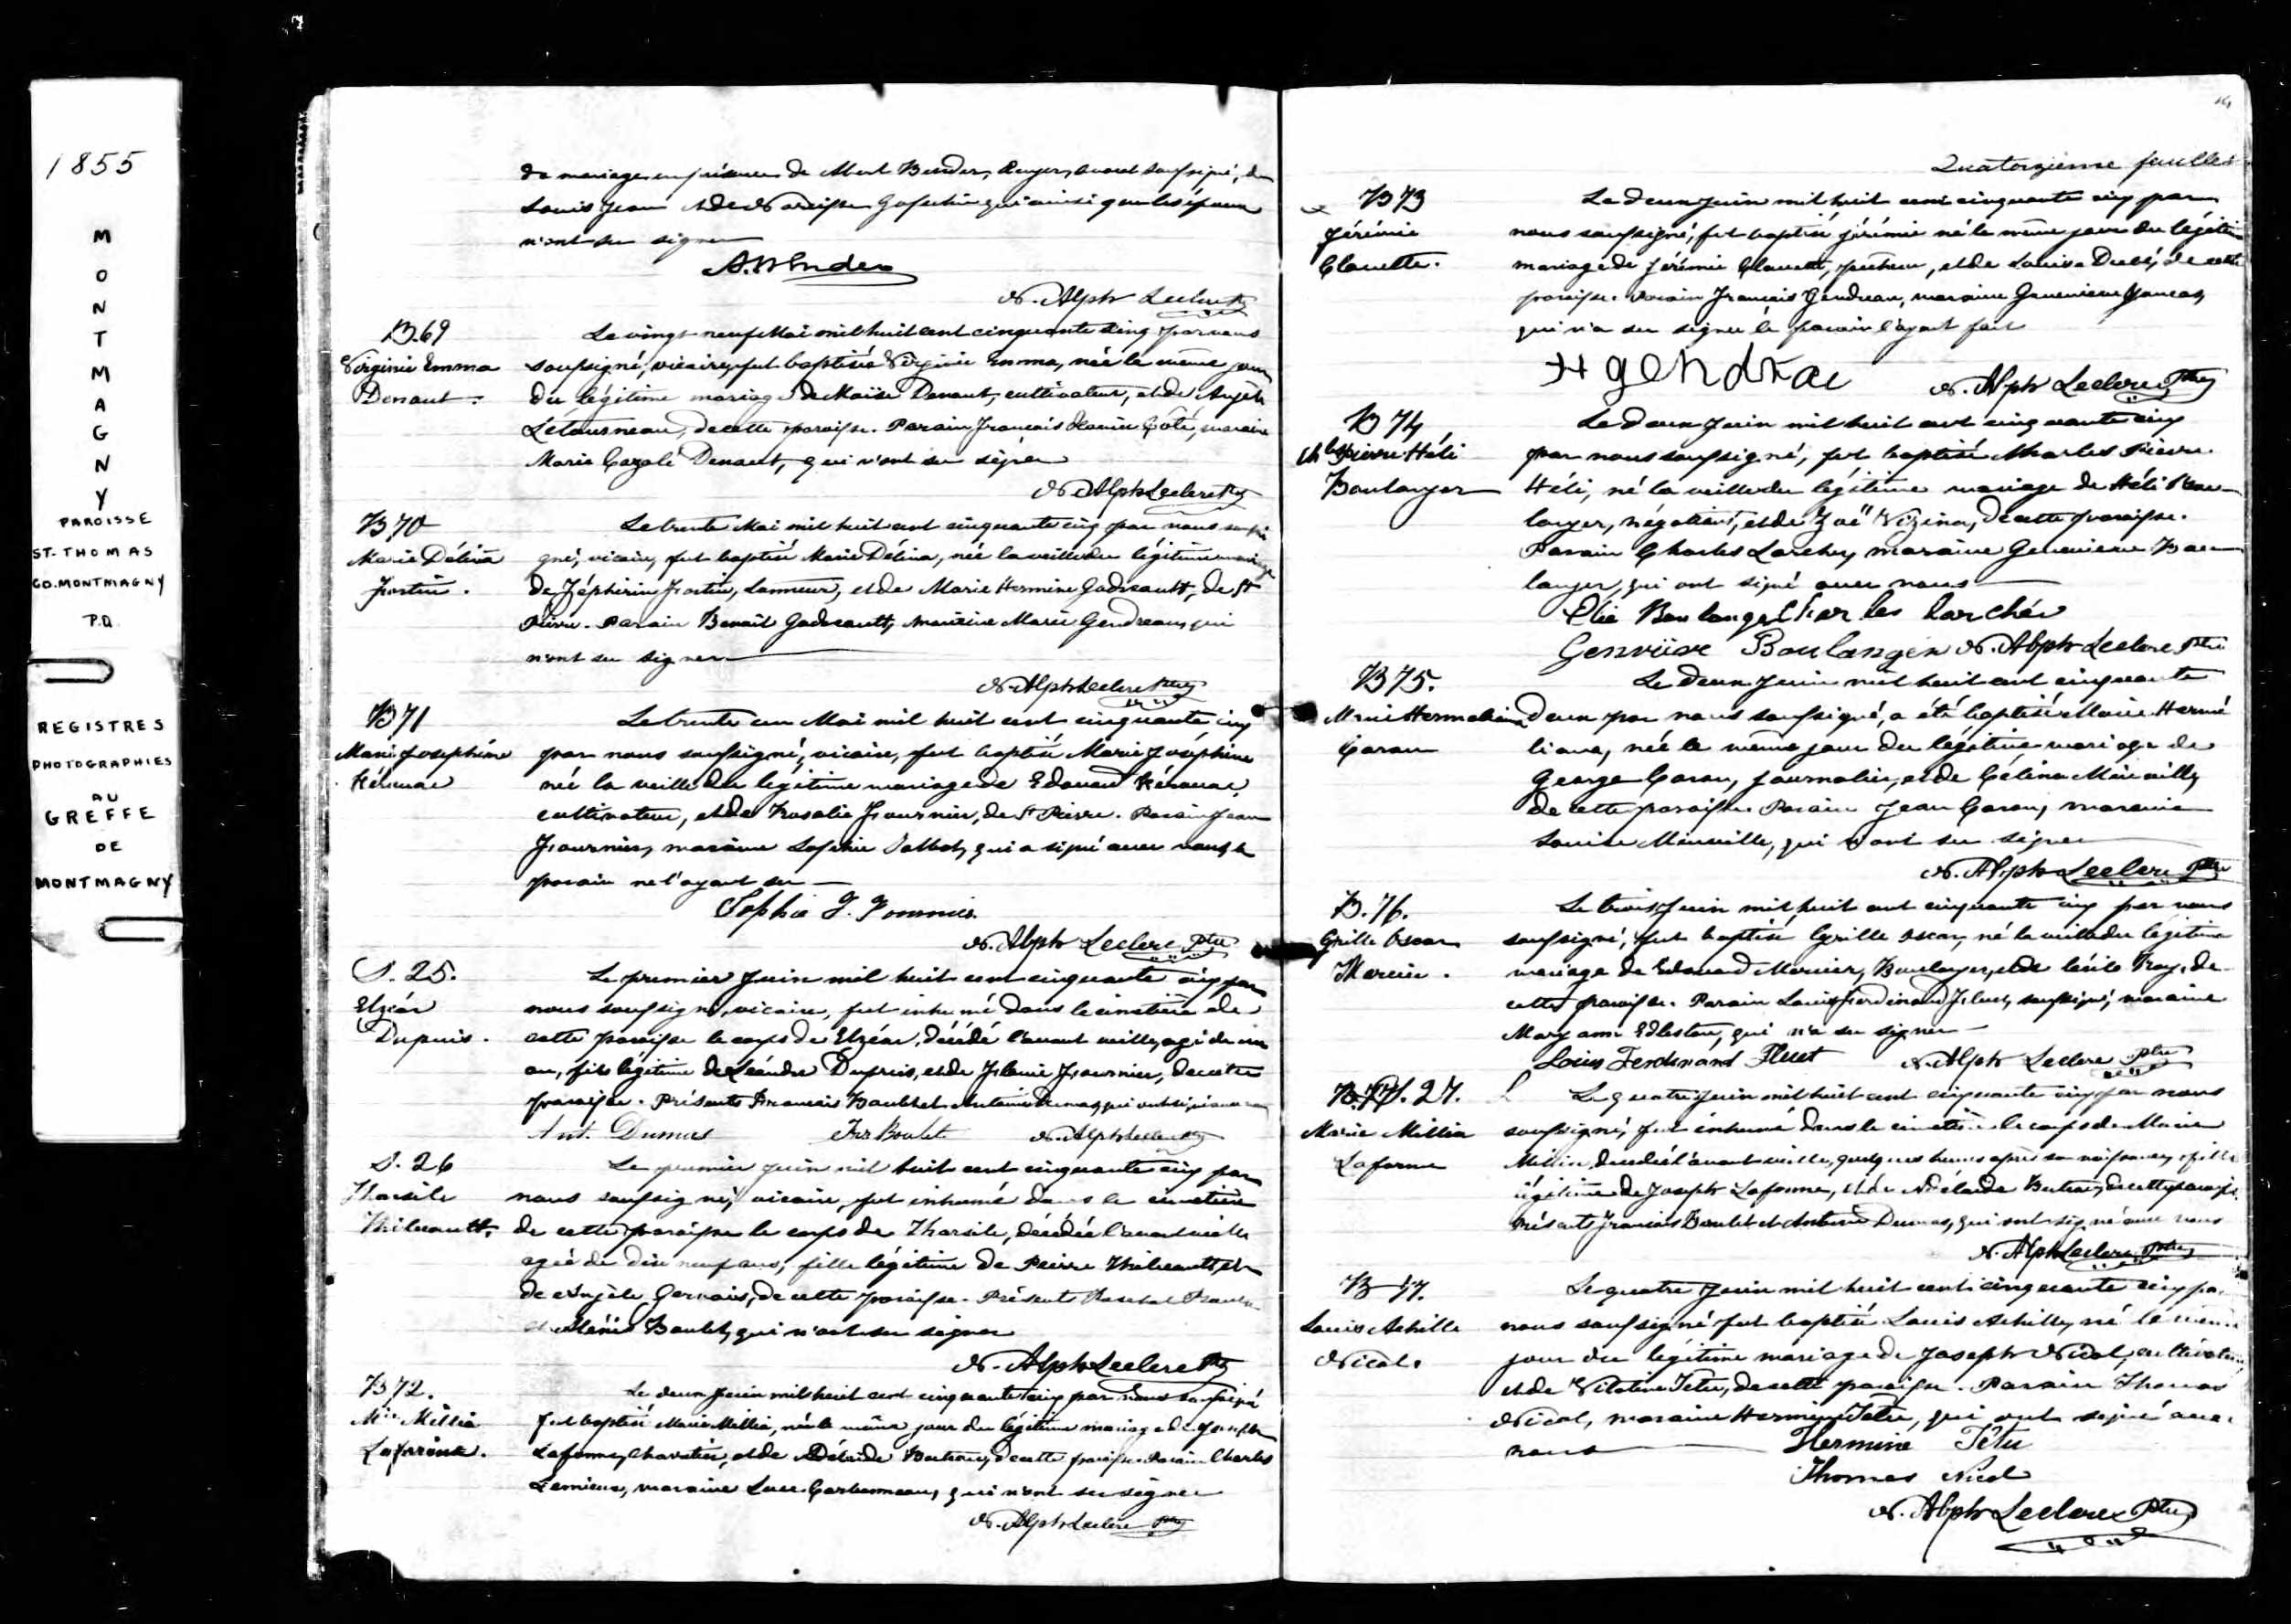 1855
MONTMAGNY
PAROISSE
ST. THOMAS
CO. MONTMAGNY
P.Q.
REGISTRES
PHOTOGRAPHIES
AU
GREFFE
DE
MONTMAGNY
de mariage en présence de Albert Bender, Ecuyer, avocat soussigné, de
Louis Jean et de Narcisse Gosselin qui ainsi que les époux
n'ont su signer
A. Bender
N. Alph Leclerc Ptre
B. 69
Virginie Emma
Denaut.
Le vingt neuf Mai mil huit cent cinquante cinq par nous
soussigné, vicaire, fut baptisée Virginie Emma, née le même jour
du légitime mariage de Moïse Denaut, cultivateur, et de Angèle
Létourneau, de cette paroisse. Parain François Côté, maraine
Marie Denaut, qui n'ont su signer
N. Alph Leclerc Ptre
B 70
Marie Délina
Fortin.
Le trente Mai mil huit cent cinquante cinq par nous soussi
gné, vicaire, fut baptisé Marie Délina, née la veille du légitime mariage
de Zéphirin Fortin, tanneur, et de Marie Hermine Godreault, de St
Pierre. Parain Benoit Godreault, maraine Marie Gendreau, qui
n'ont su signer
N. Alph Leclerc Ptre
B 71
Marie Joséphine
Kérouac
Le trente un Mai mil huit cent cinquante cinq
par nous soussigné, vicaire, fut baptisé Marie Joséphine
née la veille du légitime mariage de Edouard Kérouac,
cultivateur, et de Rosalie Fournier, de St Pierre. Parain Jean
Fournier, maraine Sophie Talbot, qui a signé avec nous, le
parain ne l'ayant su
Sophie
N. Alph Leclerc Ptre
S. 25.
Elzéar
Dupuis.
Le premier Juin mil huit cent cinquante cinq par
nous soussigné, vicaire, fut inhumé dans le cimetière de
cette paroisse le corps de Elzéar, décédé l'avant veille, agé de un
an, fils légitime de Léandre Dupuis, et de Fournier, de cette
paroisse. Présents François Boulet et Antoine Dumas, qui ont signé avec nous
Ant. Dumas Frs Boulet N. Alph Leclerc Ptre
S. 26
Tharsile
Thibeault.
Le premier juin mil huit cent cinquante cinq par
nous soussigné, vicaire, fut inhumé dans le cimetière
de cette paroisse le corps de Tharsile, décédée l'avant veille
agée de dix neuf ans, fille légitime de Pierre Thibeault, et
de Angèle Gervais, de cette paroisse. Présents
et Boulet, qui n'ont su signer
N. Alph Leclerc Ptre
B 72.
Mie Millia
Laforme.
Le deux Juin mil huit cent cinquante cinq par nous soussigné
fut baptisé Marie Millia, née le même jour du légitime mariage de Joseph
Laforme, charretier, et de Adélaïde Buteau, de cette paroisse. Parain Charles
Lemieux, maraine Luce Carbonneau, qui n'ont su signer
N. Alph Leclerc Ptre
14
Quatorzième feuillet
B 73
Jérémie
Clouette.
Le deux Juin mil huit cent cinquante cinq par
nous soussigné, fut baptisé Jérémie né le même jour du légitime
mariage de Jérémie Clouette, pêcheur, et de Louise Dubé, de cette
paroisse. Parain François Gendreau, maraine Genevieve
qui n'a su signer le parain l'ayant fait
gendrau
N. Alph Leclerc Ptre
B 74
Chs Pierre Héli
Boulanger
Le deux Juin mil huit cent cinquante cinq
par nous soussigné, fut baptisé Charles Pierre
Héli, né la veille du légitime mariage de Héli Bou-
langer, négotiant, et de Zoë Vézina, de cette paroisse.
Parain Charles Larcher, maraine Genevieve Bou
langer, qui ont signé avec nous
Elie Boulanger Charles Larchér
Genviève Boulanger N. Alph Leclerc Ptre
B 75.
Marie Hermeliana
Caron
Le deux Juin mil huit cent cinquante
deux par nous soussigné, a été baptisé Marie Hermé
liana, née le même jour du légitime mariage de
George Caron, journalier, et de Célina
de cette paroisse. Parain Jean Caron, maraine
Louise qui n'ont su signer
N. Alph Leclerc Ptre
B. 76.
Cyrille Oscar
Mercier.
Le trois Juin mil huit cent cinquante cinq par nous
soussigné, fut baptisé Cyrille Oscar, né la veille du légitime
mariage de Edouard Mercier, Boulanger, et de Cécile Roy, de
cette paroisse. Parain Louis Ferdinand Fluet, soussigné, maraine
Mary ann Edleston, qui n'a su signer
Louis Ferdinand Fluet N. Alph Leclerc Ptre
S. 27.
Marie Millia
Laforme
Le quatre Juin mil huit cent cinquante cinq par nous
soussigné, fut inhumé dans le cimetière le corps de Marie
Millia, décédée l'avant veille, quelques heures après sa naissance, fille
légitime de Joseph Laforme, et de Adélaïde Buteau, de cette paroisse.
Présents François Boulet et Antoine Dumas, qui ont signé avec nous
N. Alph Leclerc Ptre
B 77.
Louis Achille
Nicol.
Le quatre Juin mil huit cent cinquante cinq par
nous soussigné fut baptisé Louis Achille, né le même
jour du légitime mariage de Joseph Nicol, cultivateur,
et de Vitaline Tetu, de cette paroisse. Parain Thomas
Nicol, maraine Hermine Tetu, qui ont signé avec
nous
Hermine Têtu
Thomas Nicol
N. Alph Leclerc Ptre